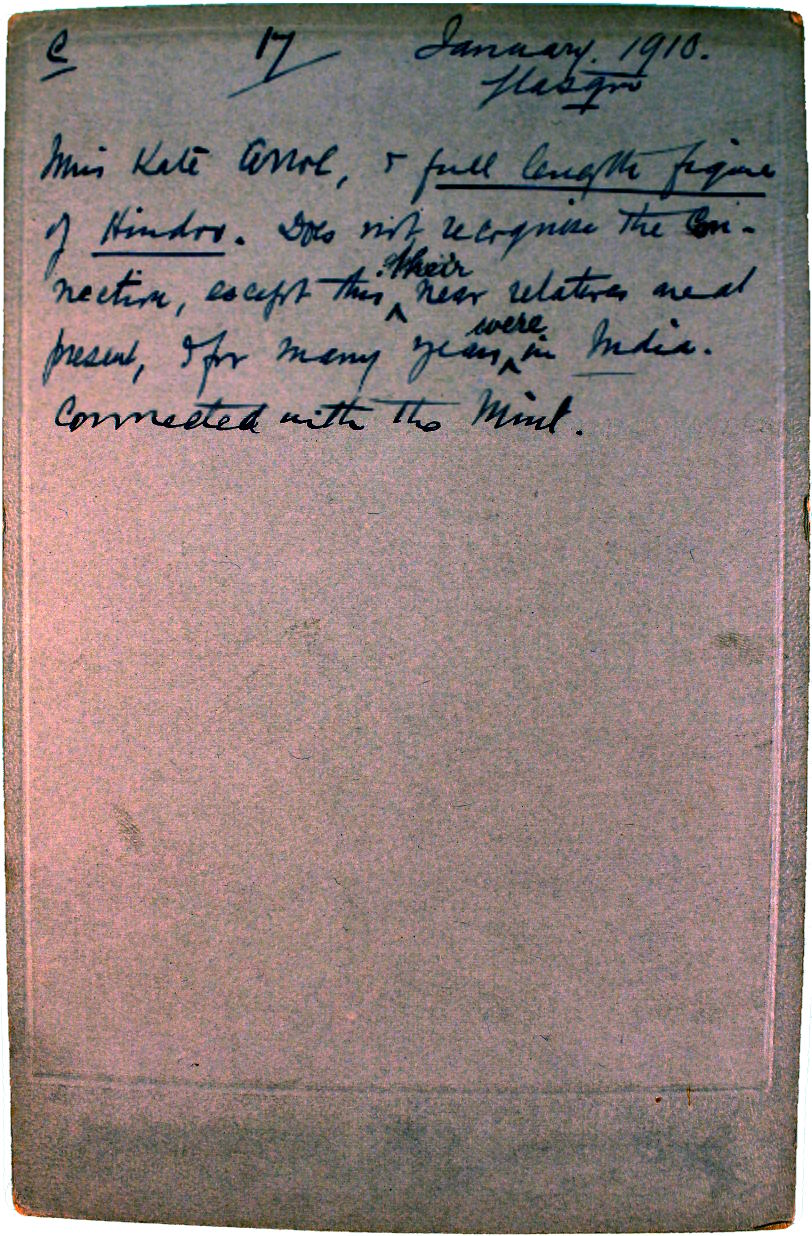 C 17 January. 1910.
Glasgow
Miss Kate Arrol, & full length figure
of Hindoo. Does not recognise the Con-
nection, except this, their near relatives are at
present, & for many years, were in India.
Connected with the Mint.